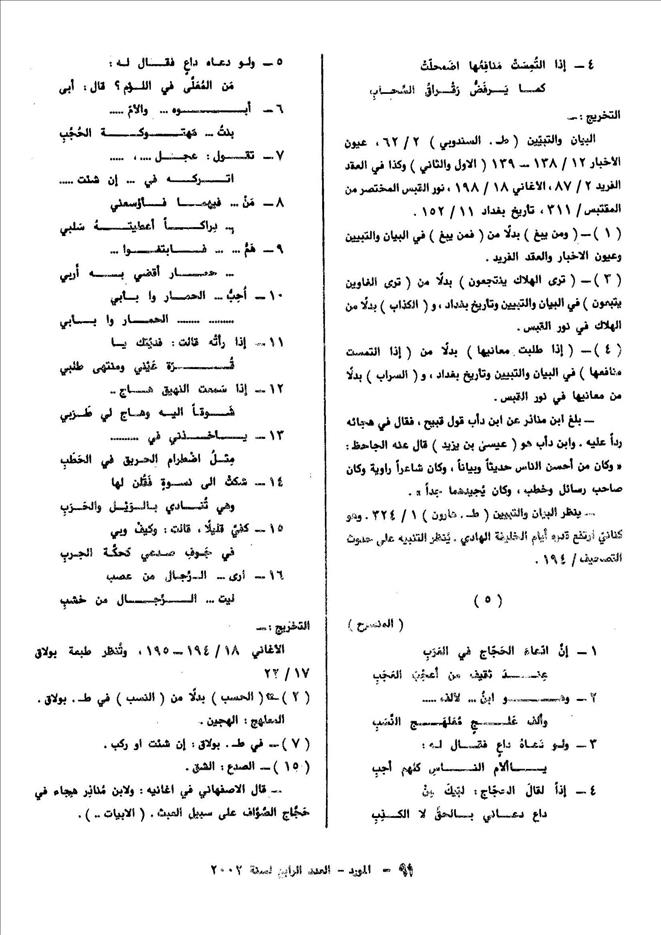 ٤ ــ إذا التُمِسَتْ مَنافِعُها اضمحلّتْ
كمـا يَـرفَضُّ رَقْـراقُ السَّحابِ
التخريج : ــ
البيان والتبيّين ( طـ . السندوبي ) ٢ / ٦٢ ، عيون
الأخبار ١٢ / ١٣٨ ــ ١٣٩ ( الاول والثاني ) وكذا في العقد
الفريد ٢ / ٨٧ ، الأغاني ١٨ / ١٩٨ ، نور القبس المختصر من
المقتبس / ٣١١ ، تأريخ بغداد ١١ / ١٥٢ .
( ١ ) ــ ( ومن يبغ ) بدلًا من ( فمن يبغ ) في البيان والتبيين
وعيون الاخبار والعقد الفريد .
( ٣ ) ــ ( ترى الهلاك ينتجعون ) بدلا من ( ترى الغاوين
يتبعون ) في البيان والتبيين وتأريخ بغداد ، و ( الكذاب ) بدلًا من
الهلاك في نور القبس .
( ٤ ) ــ ( إذا طلبت معانيها ) بدلا من ( إذا التمست
منافعها ) في البيان والتبيين وتأريخ بغداد ، و ( السراب ) بدلًا
من معانيها في نور القبس .
ــ بلغ ابن مناذر عن ابن دأب قول قبيح ، فقال في هجائه
رداً عليه . وابن دأب هو ( عيسى بن يزيد ) قال عنه الجاحظ :
« وكان من أحسن الناس حديثاً وبياناً ، وكان شاعراً راوية وكان
صاحب رسائل وخطب ، وكان يُجيدهما جداً » .
ــ ينظر البيان والتبيين ( طـ . هارون ) ١ / ٣٢٤ . وهو
كنانيّ ارتفع قدره أيام الخليفة الهادي . يُنظر التنبيه على حدوث
التصحيف / ١٩٤ .
( ٥ )
( المنسرح )
١ ــ إنَّ ادّعاءَ الحَجّاجِ في العَرَبِ
عِنــدَ ثقيفٍ من أعجَبِ العَجَبِ
٢ ــ وهــو ابنُ ... لألف .....
وألف عَلــجٍ مُعَلهَــجِ النَّسَبِ
٣ ــ ولـو دَعـاهُ داعٍ فقـال لـه :
يـــا ألأم النــاس كلّهم أجبِ
٤ ــ إذاً لقالَ الحجّاج : لبّيك مِنْ
داع دعــاني بـالحقّ لا الكــذِبِ
٥ ــ ولـو دعـاه داعٍ فقــال لـه :
مَن المُعَلَّى في اللـؤم ؟ قال : أبى
٦ ــ أبـــوه ... والأمّ .....
بنتُ ... مَهتـوكــة الحُجُبِ
٧ ــ تقـول : عجـل .... ، .....
اتـركــه في ... إن شئت .....
٨ ــ مَنْ ... فيهمــا فـأوسعني
... بِراكــاً أعطيتــهُ سَلبي
٩ ــ هُمُ ... ... فــابتغـوا ...
... حمــار أقضي بــه أربي
١٠ ــ أُحِبُّ ... الحمـار وا بـأبي
........ ........ الحمار وا بــأبي
١١ ــ إذا رأتْه قالت : فديْتك يـا
قُــرَّة عَيْني ومنتهى طلبي
١٢ ــ إذا سَمعت النهيق هـاج ..
شَــوقـاً اليـه وهـاج لي طَـرَبي
١٣ ــ يـــاخــذني في .........
مِثـلُ اضْطرامِ الحريق في الحَطَبِ
١٤ ــ شكتْ الى نسـوةٍ فَقُلن لها
وهي تُنــادي بـالـوَيْـلِ والحَـرَبِ
١٥ ــ كفيِّ قليلًا ، قالت : وكيفَ وبي
في جَـوفِ صدعي كحكّـة الجـربِ
١٦ ــ أرى ... الـرّجال من عصب
ليت ... الــرّجـال من خشبِ
التخريج : ــ
الأغاني ١٨ / ١٩٤ ــ ١٩٥ ، وتُنظر طبعة بولاق
١٧ /
( ٢ ) ــ ( الحسب ) بدلًا من ( النسب ) في طـ . بولاق .
المعلهج : الهجين .
( ٧ ) ــ في طـ . بولاق : إن شئت أو ركب .
( ١٥ ) ــ الصدع : الشق .
ــ قال الاصفهاني في اغانيه : ولابن مُناذِر هِجاء في
حَجّاج الصَّوّاف على سبيل العبث . ( الابيات .. ) .
المورد - العدد الرابع لسنة ٢٠٠٢